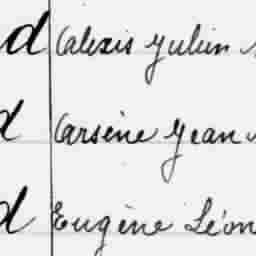 d (alexis Julien
d (arsène Jean
d Eugène Léon